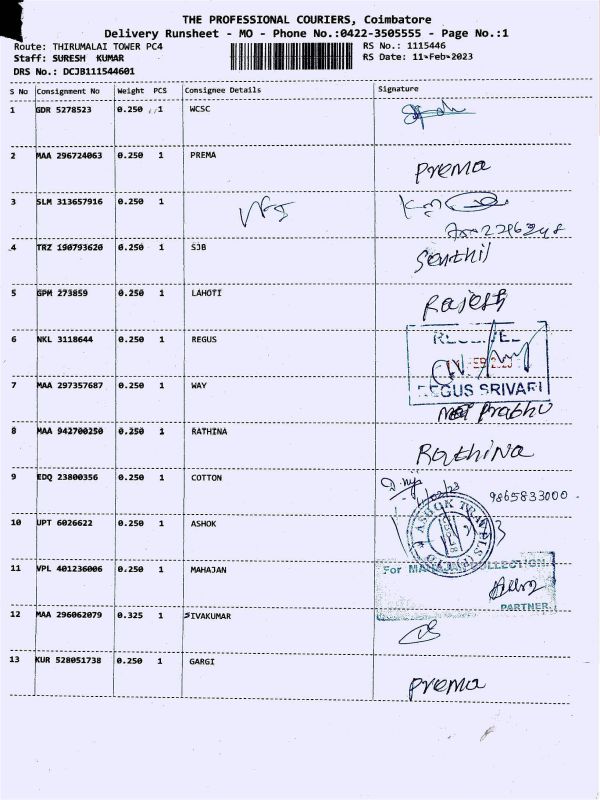 THE PROFESSIONAL COURIERS, Coimbatore
Delivery Runsheet - MO - Phone No.:0422-3505555 - Page No.:1
Route: THIRUMALAI TOWER PC4
RS No.: 1115446
Staff: SURESH KUMAR
RS Date: 11-Feb-2023
DRS No.: DCJB111544601
S No Consignment No Weight PCS Consignee Details Signature
1 GDR 5278523 0.250 1 WCSC
2 MAA 296724063 0.250 1 PREMA
Prema
3 SLM 313657916 0.250 1
4 TRZ 190793620 0.250 1 SJB
Senthil
5 GPM 273859 0.250 1 LAHOTI
Rajesh
6 NKL 3118644 0.250 1 REGUS
REGUS SRIVARI
7 MAA 297357687 0.250 1 WAY
Prabhu
8 MAA 942700250 0.250 1 RATHINA
Rathina
9 EDQ 23800356 0.250 1 COTTON
9865833000
10 UPT 6026622 0.250 1 ASHOK
ASHOK TRAVELS
11 VPL 401236006 0.250 1 MAHAJAN
For MAHAJAN COLLECTION
PARTNER
12 MAA 296062079 0.325 1 SIVAKUMAR
13 KUR 528051738 0.250 1 GARGI
Prema